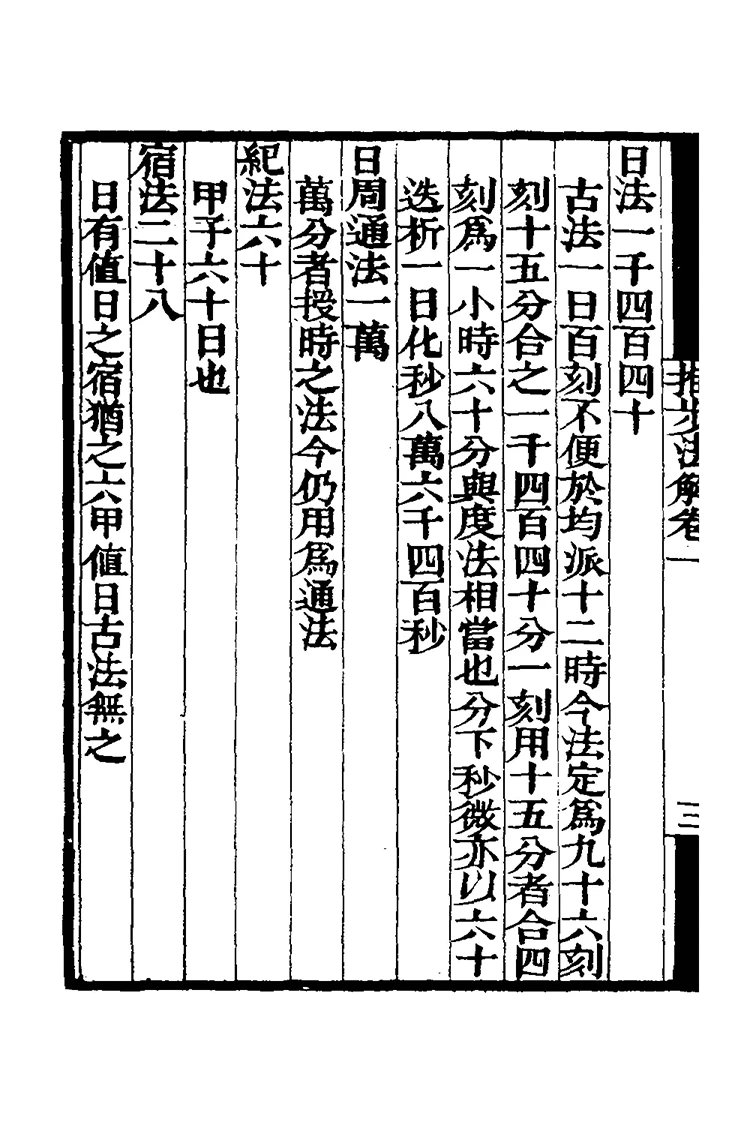 推步法解卷一
三
日法一千四百四十
古法一日百刻不便於均派十二時今法定爲九十六刻
刻十五分合之一千四百四十分一刻用十五分者合四
刻爲一小時六十分與度法相當也分下秒微亦以六十
迭析一日化秒八萬六千四百秒
日周通法一萬
萬分者授時之法今仍用爲通法
紀法六十
甲子六十日也
宿法二十八
日有值日之宿猶之六甲值日古法無之